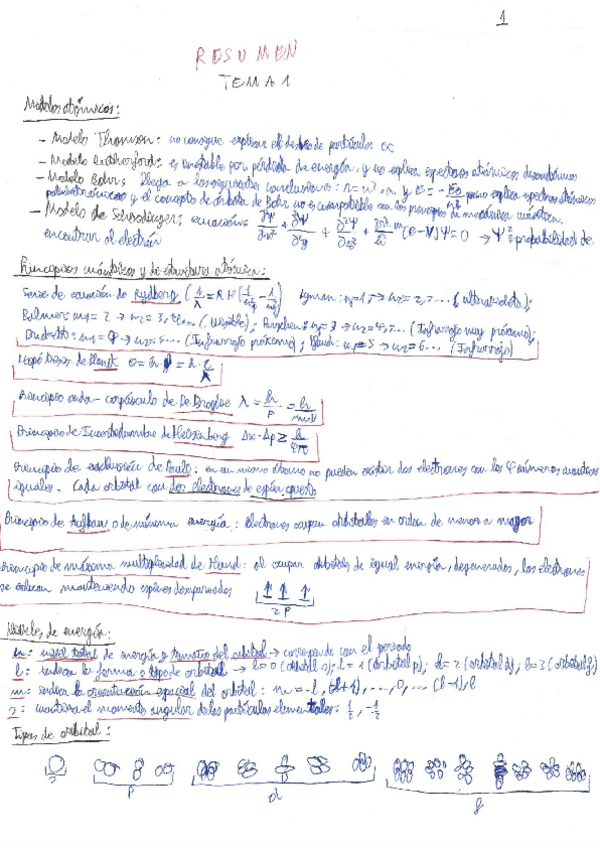 1
RESUMEN
TEMA 1
Modelos atómicos:
- Modelo Thomson: no consigue explicar el desvío de partículas α
- Modelo Rutherford: es inestable por pérdida de energía, y no explica espectros atómicos
- Modelo Bohr: llega a las siguientes conclusiones: r = n² · y E = - pero no explica espectros atómicos
polielectrónicos y el concepto de órbita de Bohr no es compatible con los principios de mecánica cuántica.
- Modelo de Schrödinger: ecuación: (E-V)Ψ=0 → Ψ²=probabilidad de
encontrar al electrón
Principios cuánticos y de estructura atómica:
Serie de ecuación de Rydberg (1/λ = R H [1/n₁² - 1/n₂²] Lyman: n₁=1 → n₂=2,... (ultravioleta);
Balmer: n₁=2 → n₂=3,... (visible); Paschen: n₁=3 → n₂=4,... (Infrarrojo muy próximo);
Brackett: n₁=4 → n₂=5... (Infrarrojo próximo); Pfund: n₁=5 → n₂=6... (Infrarrojo)
Hipótesis de Planck E = h · = h · c/λ
Principio onda-corpúsculo de De Broglie λ = h/p = h/m·v
Principio de Incertidumbre de Heisenberg Δx · Δp ≥ h/4π
Principio de exclusión de Pauli: en un mismo átomo no pueden existir dos electrones con los 4 números cuánticos
iguales. Cada orbital con dos electrones de espín opuesto
Principio de Aufbau o de mínima energía: electrones ocupan orbitales en orden de menor a mayor
Principio de máxima multiplicidad de Hund: al ocupar orbitales de igual energía, degenerados, los electrones
se colocan manteniendo espines desapareados ↑ ↑ ↑
2P
Niveles de energía:
n: nivel total de energía y tamaño del orbital → corresponde con el período
l: indica la forma o tipo de orbital → l=0 (orbital s); l=1 (orbital p); l=2 (orbital d); l=3 (orbital f)
m: indica la orientación espacial del orbital: m = -l, (l+1),..., 0,... (l-1), l
s: el momento angular de las partículas elementales: 1/2, -1/2
Tipos de orbital:
s p d f